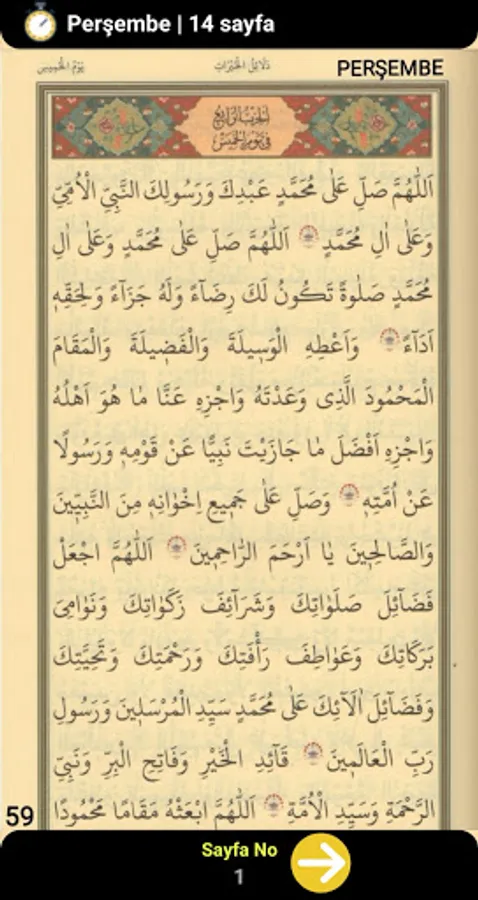 Perşembe | 14 sayfa
يَوْمُ الْخَمِيسِ دَلَائِلُ الْخَيْرَاتِ PERŞEMBE
اَلْحِزْبُ الرَّابِعُ
فِي يَوْمِ الْخَمِيسِ
اَللّٰهُمَّ صَلِّ عَلٰى مُحَمَّدٍ عَبْدِكَ وَرَسُولِكَ النَّبِيِّ الْاُمِّيِّ
وَعَلٰى اٰلِ مُحَمَّدٍ اَللّٰهُمَّ صَلِّ عَلٰى مُحَمَّدٍ وَعَلٰى اٰلِ
مُحَمَّدٍ صَلٰوةً تَكُونُ لَكَ رِضَاءً وَلَهُ جَزَاءً وَلِحَقِّهِ
اَدَاءً وَاَعْطِهِ الْوَسِيلَةَ وَالْفَضِيلَةَ وَالْمَقَامَ
الْمَحْمُودَ الَّذِى وَعَدْتَهُ وَاجْزِهِ عَنَّا مَا هُوَ اَهْلُهُ
وَاجْزِهِ اَفْضَلَ مَا جَازَيْتَ نَبِيًّا عَنْ قَوْمِهِ وَرَسُولًا
عَنْ اُمَّتِهِ وَصَلِّ عَلٰى جَمِيعِ اِخْوَانِهِ مِنَ النَّبِيِّينَ
وَالصَّالِحِينَ يَا اَرْحَمَ الرَّاحِمِينَ اَللّٰهُمَّ اجْعَلْ
فَضَآئِلَ صَلَوَاتِكَ وَشَرَآئِفَ زَكَوَاتِكَ وَنَوَامِىَ
بَرَكَاتِكَ وَعَوَاطِفَ رَأْفَتِكَ وَرَحْمَتِكَ وَتَحِيَّتِكَ
وَفَضَآئِلَ اٰلَآئِكَ عَلٰى مُحَمَّدٍ سَيِّدِ الْمُرْسَلِينَ وَرَسُولِ
رَبِّ الْعَالَمِينَ قَآئِدِ الْخَيْرِ وَفَاتِحِ الْبِرِّ وَنَبِيِّ
الرَّحْمَةِ وَسَيِّدِ الْاُمَّةِ اَللّٰهُمَّ ابْعَثْهُ مَقَامًا مَحْمُودًا
59
Sayfa No
1